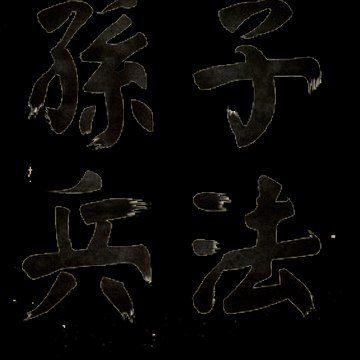 孫子
兵法